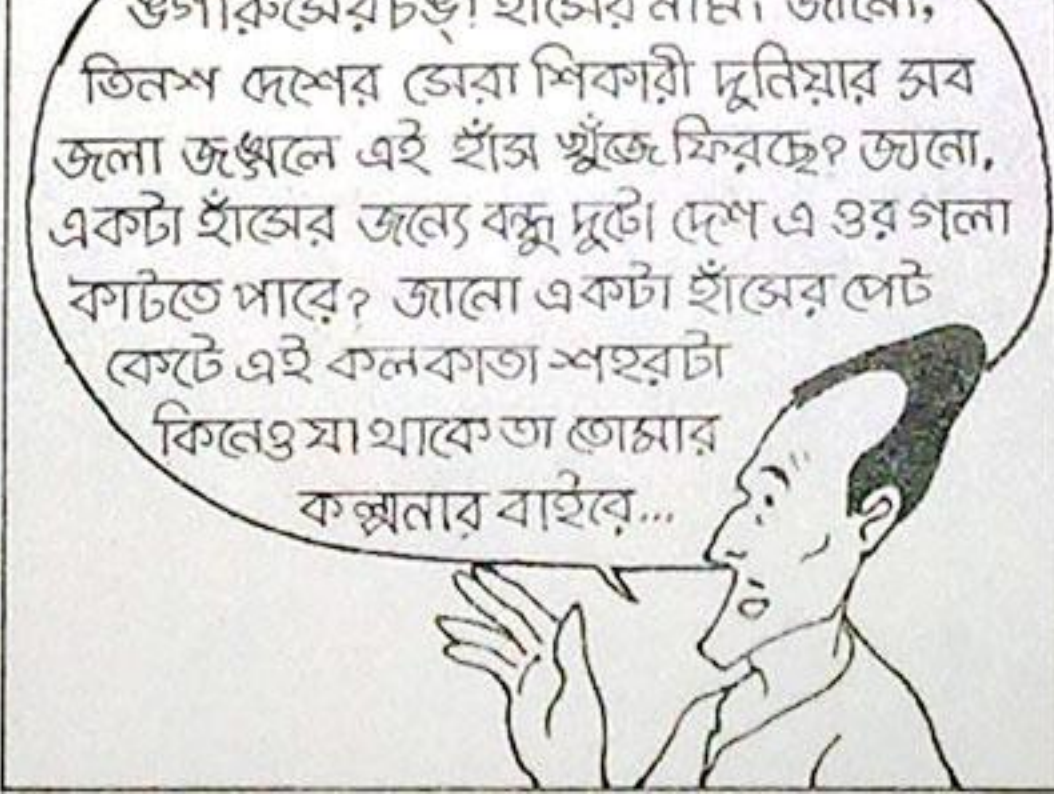 হাঁসের নাম। জানো,
তিনশ দেশের সেরা শিকারী দুনিয়ার সব
জলা জঙ্গলে এই হাঁস খুঁজে ফিরছে? জানো,
একটা হাঁসের জন্যে বন্ধু দুটো দেশ এ ওর গলা
কাটতে পারে? জানো একটা হাঁসের পেট
কেটে এই কলকাতা শহরটা
কিনেও যা থাকে তা তোমার
কল্পনার বাইরে...